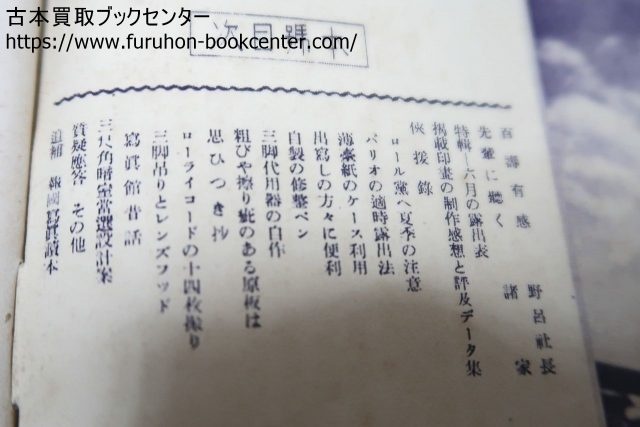 古本買取ブックセンター
https://www.furuhon-bookcenter.com/
本號目次
百壽有感 野呂社長
先輩に聽く 諸家
特輯―六月の露出表
揭載印畫の制作感想と評及データ集
俠援錄
ロール黨へ夏季の注意
バリオの適時露出法
薄臺紙のケース利用
出寫しの方々に便利
自製の修整ペン
三脚代用器の自作
粗びや擦り疵のある原板は
思ひつき抄
ローライコードの十四枚撮り
三脚吊りとレンズフッド
寫眞館昔話
三尺角暗室當選設計案
質疑應答 その他
追補 報國寫眞讀本